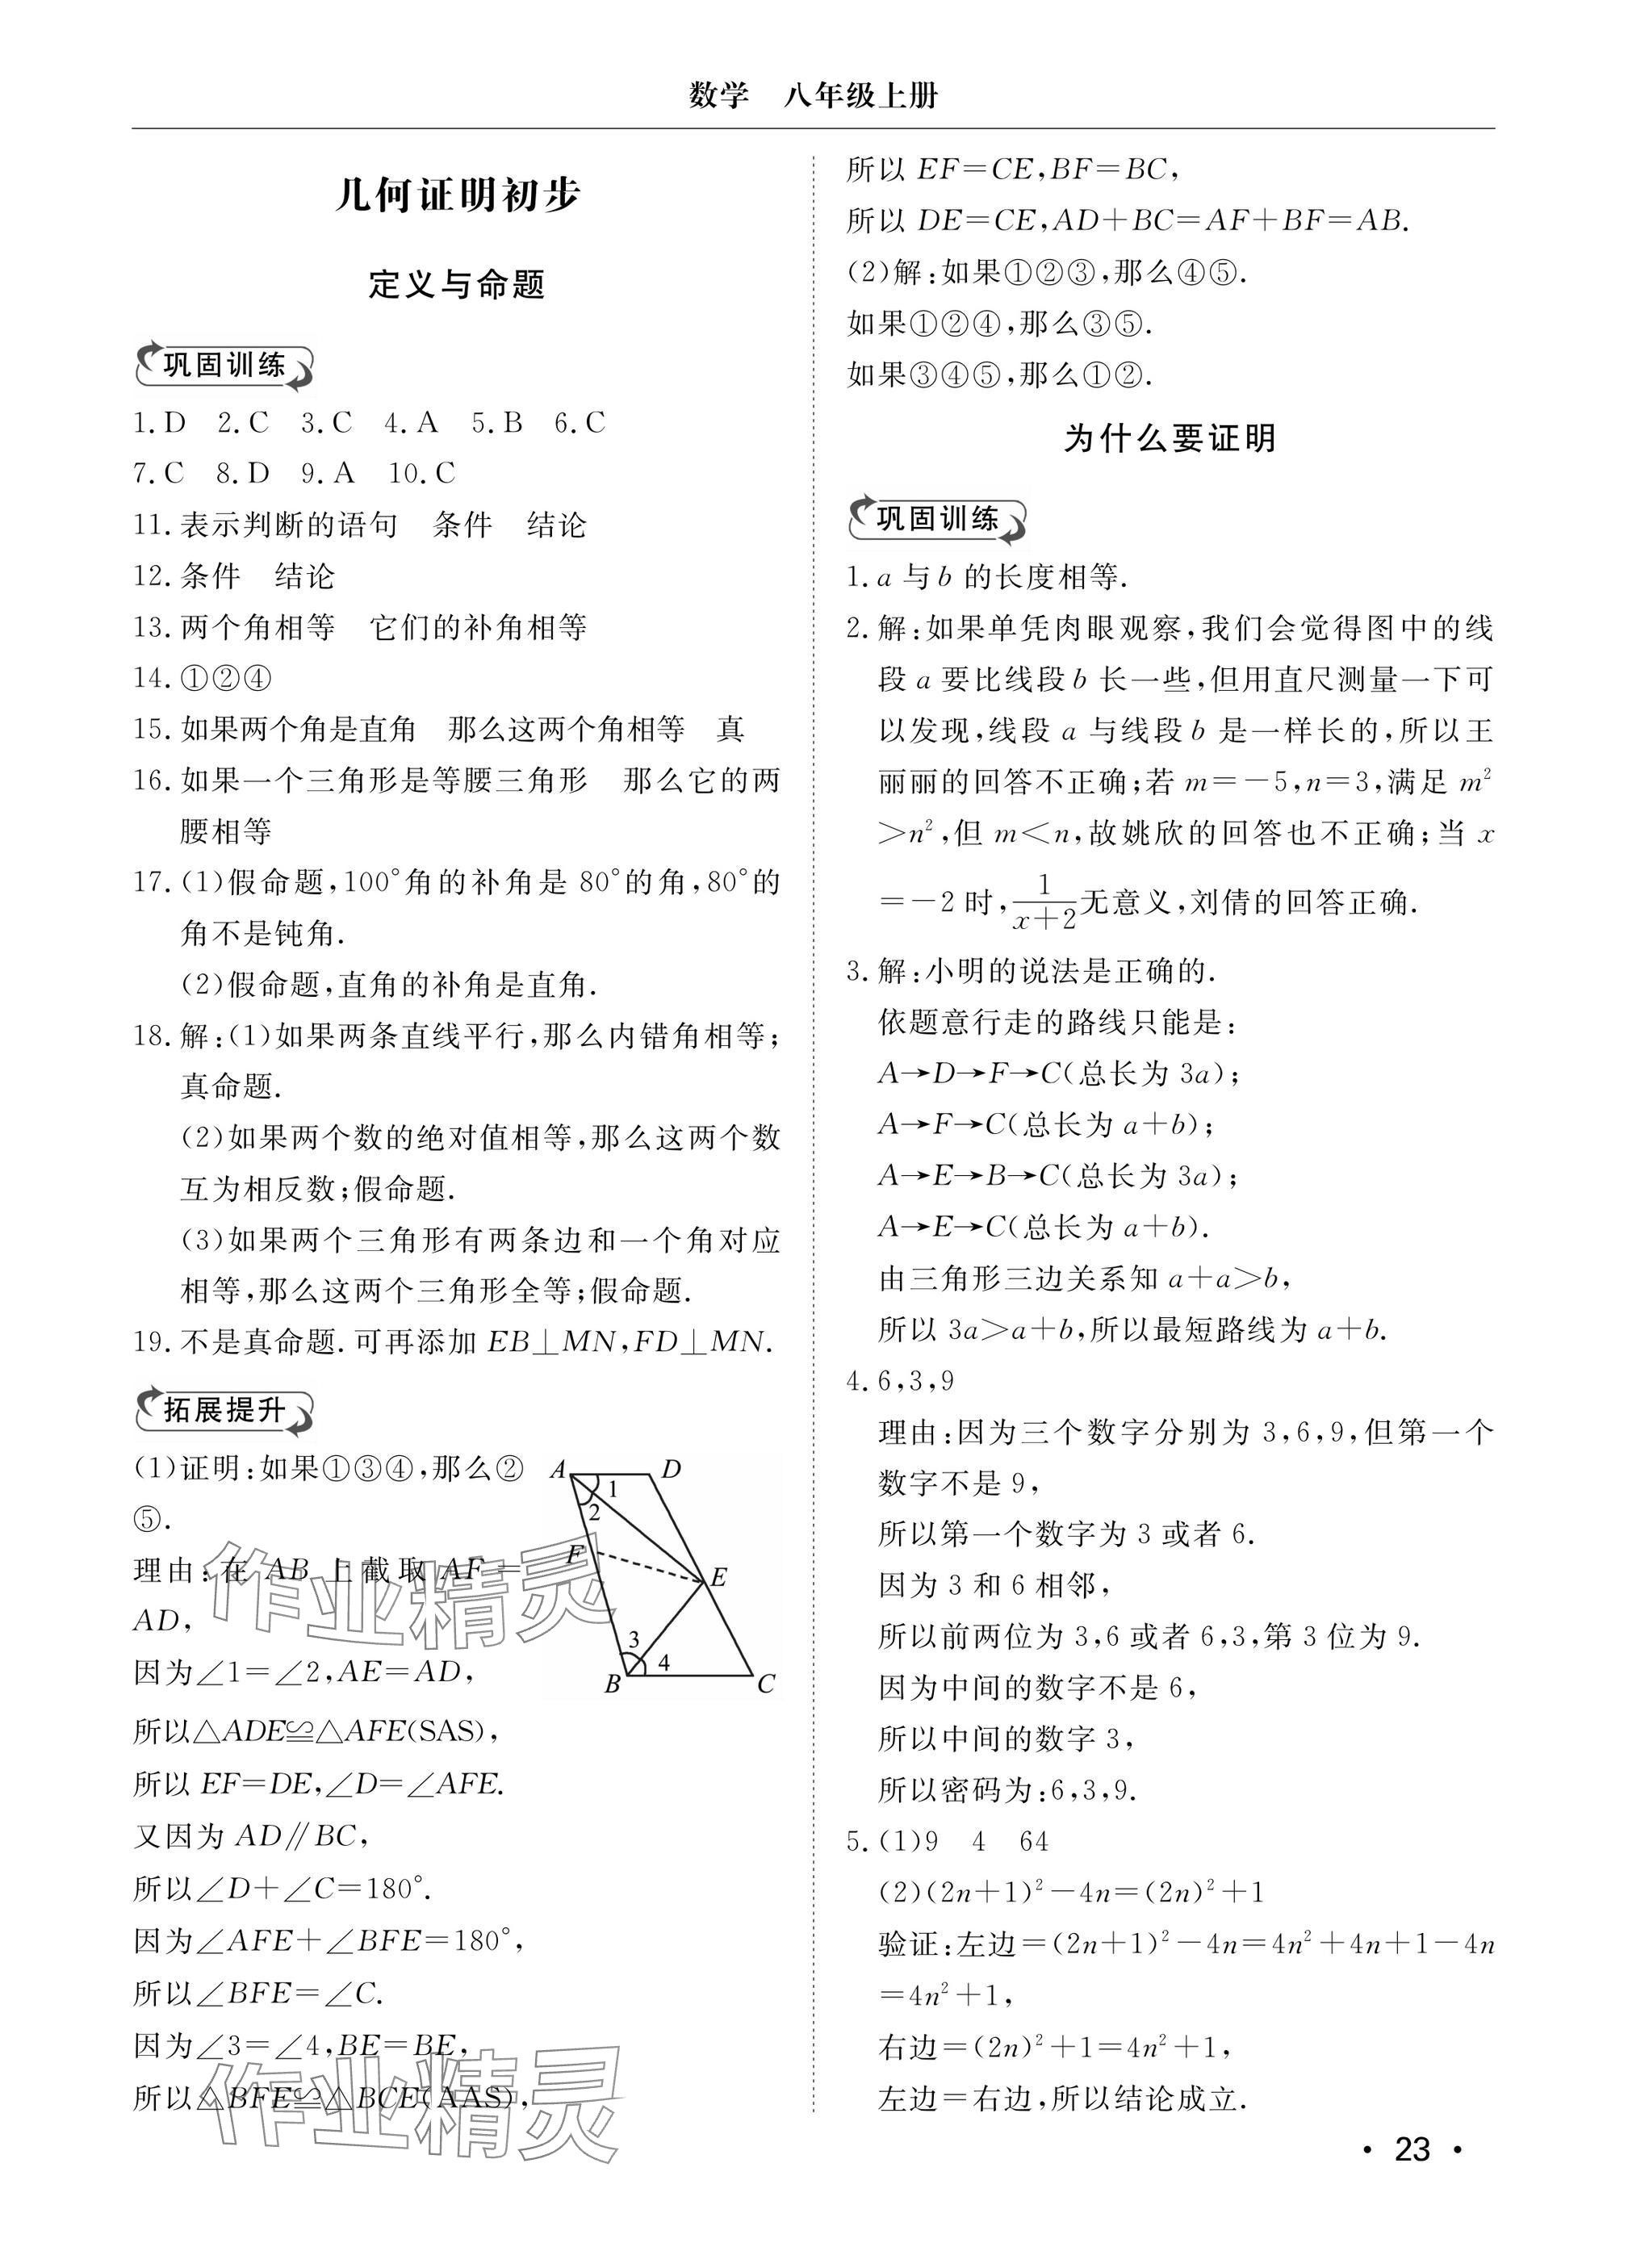 数学 八年级上册
几何证明初步
定义与命题
巩固训练
1. D 2. C 3. C 4. A 5. B 6. C
7. C 8. D 9. A 10. C
11. 表示判断的语句 条件 结论
12. 条件 结论
13. 两个角相等 它们的补角相等
14. ①②④
15. 如果两个角是直角 那么这两个角相等 真
16. 如果一个三角形是等腰三角形 那么它的两
腰相等
17. (1)假命题,100°角的补角是 80°的角,80°的
角不是钝角.
(2)假命题,直角的补角是直角.
18. 解:(1)如果两条直线平行,那么内错角相等;
真命题.
(2)如果两个数的绝对值相等,那么这两个数
互为相反数;假命题.
(3)如果两个三角形有两条边和一个角对应
相等,那么这两个三角形全等;假命题.
19. 不是真命题. 可再添加 EB⊥MN,FD⊥MN.
拓展提升
(1)证明:如果①③④,那么②
⑤.
理由:在 AB 上截取 AF=
AD,
因为∠1=∠2,AE=AD,
所以△ADE≌△AFE(SAS),
所以 EF=DE,∠D=∠AFE.
又因为 AD∥BC,
所以∠D+∠C=180°.
因为∠AFE+∠BFE=180°,
所以∠BFE=∠C.
因为∠3=∠4,BE=BE,
所以△BFE≌△BCE(AAS),
A D
1
2
F
E
3
4
B C
作业精灵
作业精灵
所以 EF=CE,BF=BC,
所以 DE=CE,AD+BC=AF+BF=AB.
(2)解:如果①②③,那么④⑤.
如果①②④,那么③⑤.
如果③④⑤,那么①②.
为什么要证明
巩固训练
1. a 与 b 的长度相等.
2. 解:如果单凭肉眼观察,我们会觉得图中的线
段 a 要比线段 b 长一些,但用直尺测量一下可
以发现,线段 a 与线段 b 是一样长的,所以王
丽丽的回答不正确;若 m=−5,n=3,满足 m²
>n²,但 m<n,故姚欣的回答也不正确;当 x
=−2 时,1/(x+2)无意义,刘倩的回答正确.
3. 解:小明的说法是正确的.
依题意行走的路线只能是:
A→D→F→C(总长为 3a);
A→F→C(总长为 a+b);
A→E→B→C(总长为 3a);
A→E→C(总长为 a+b).
由三角形三边关系知 a+a>b,
所以 3a>a+b,所以最短路线为 a+b.
4. 6,3,9
理由:因为三个数字分别为 3,6,9,但第一个
数字不是 9,
所以第一个数字为 3 或者 6.
因为 3 和 6 相邻,
所以前两位为 3,6 或者 6,3,第 3 位为 9.
因为中间的数字不是 6,
所以中间的数字 3,
所以密码为:6,3,9.
5. (1)9 4 64
(2)(2n+1)²−4n=(2n)²+1
验证:左边=(2n+1)²−4n=4n²+4n+1−4n
=4n²+1,
右边=(2n)²+1=4n²+1,
左边=右边,所以结论成立.
· 23 ·